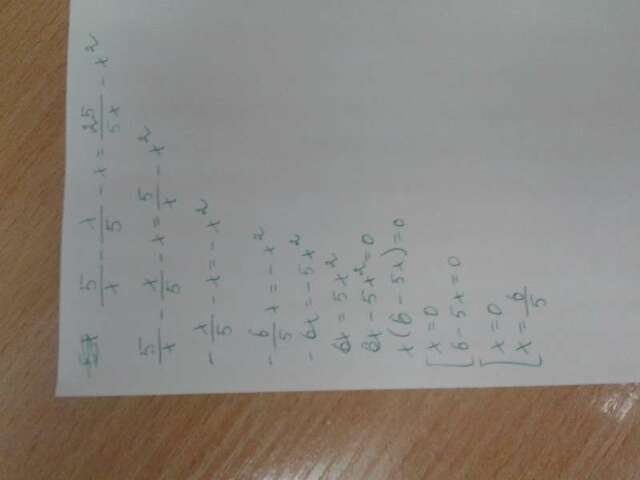 5/x - x/5 - x = 25/5x - x²
5/x - x/5 - x = 5/x - x²
- x/5 - x = - x²
- 6/5 x = - x²
- 6x = - 5x²
6x = 5x²
6x - 5x² = 0
x(6 - 5x) = 0
[ x = 0
6 - 5x = 0
[ x = 0
x = 6/5